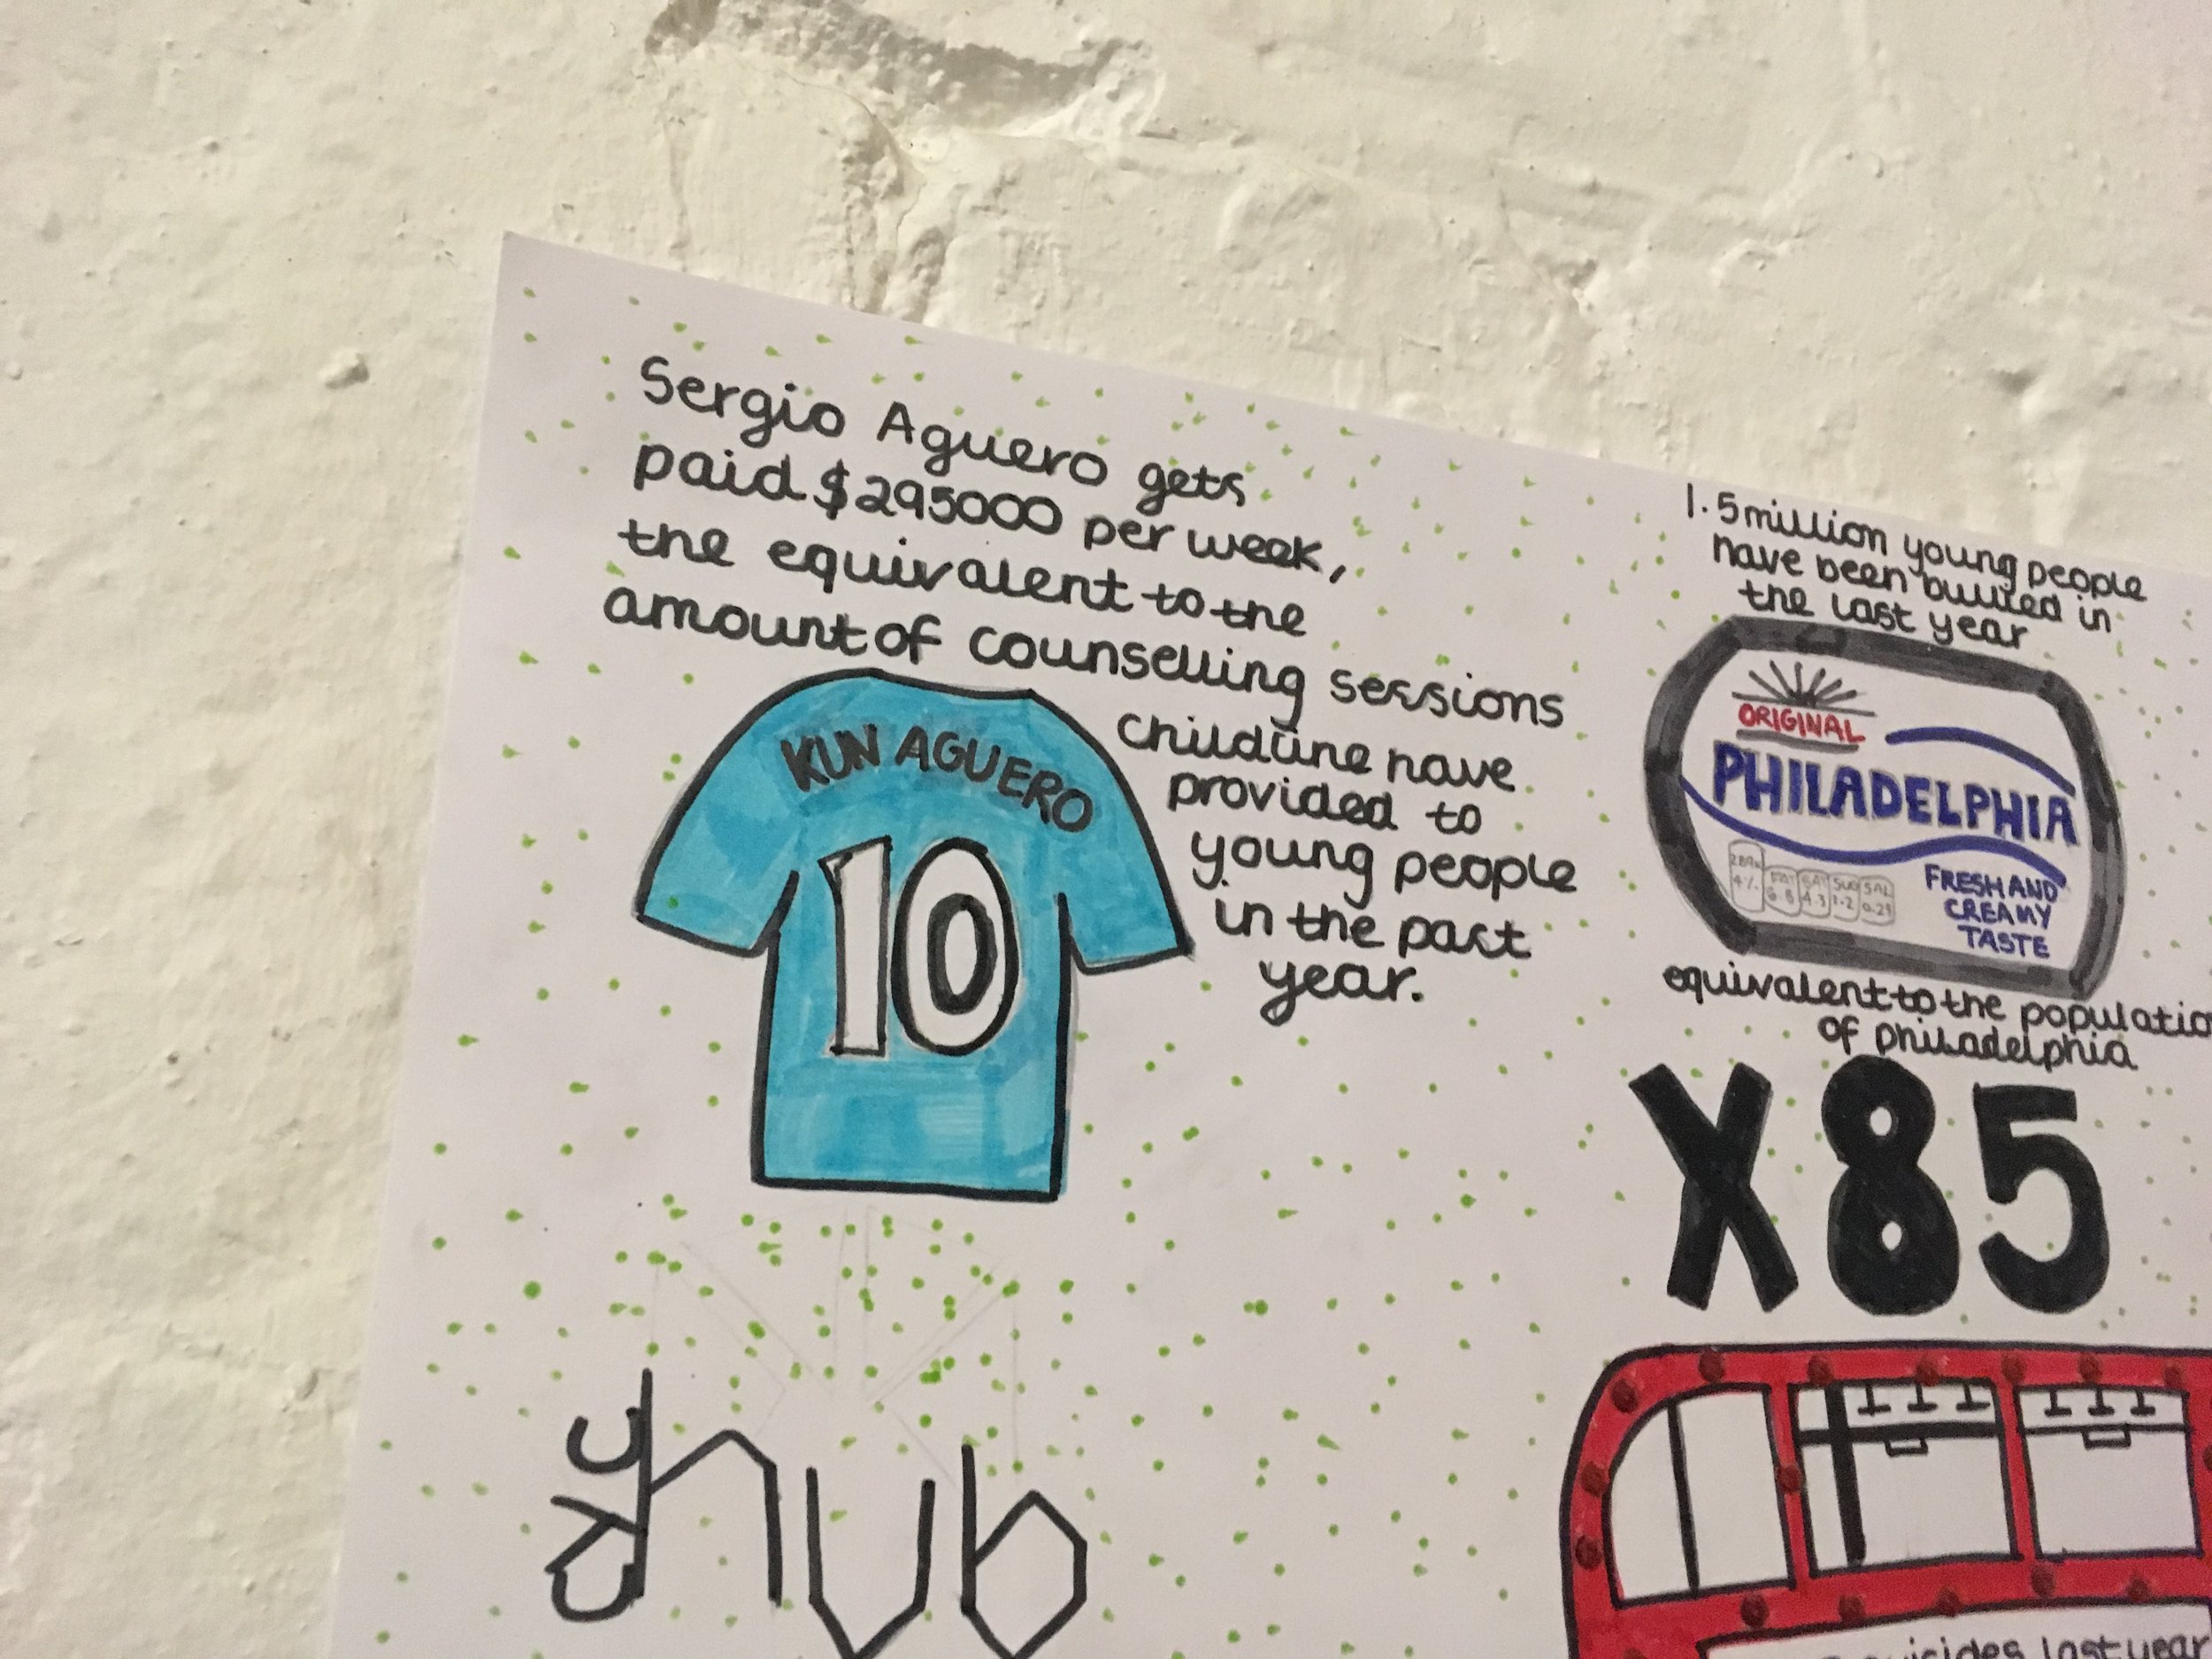 Sergio Aguero gets
paid $295000 per week,
the equivalent to the
amount of counselling sessions
Childline have
provided to
young people
in the past
year.
KUN AGUERO
10
1.5 million young people
have been bullied in
the last year
ORIGINAL
PHILADELPHIA
FRESH AND
CREAMY
TASTE
FAT SAT SUG SAL
4% 6.8 4.3 1.2 0.25
equivalent to the populatio
of philadelphia
X85
cyc
hub
suicides last year